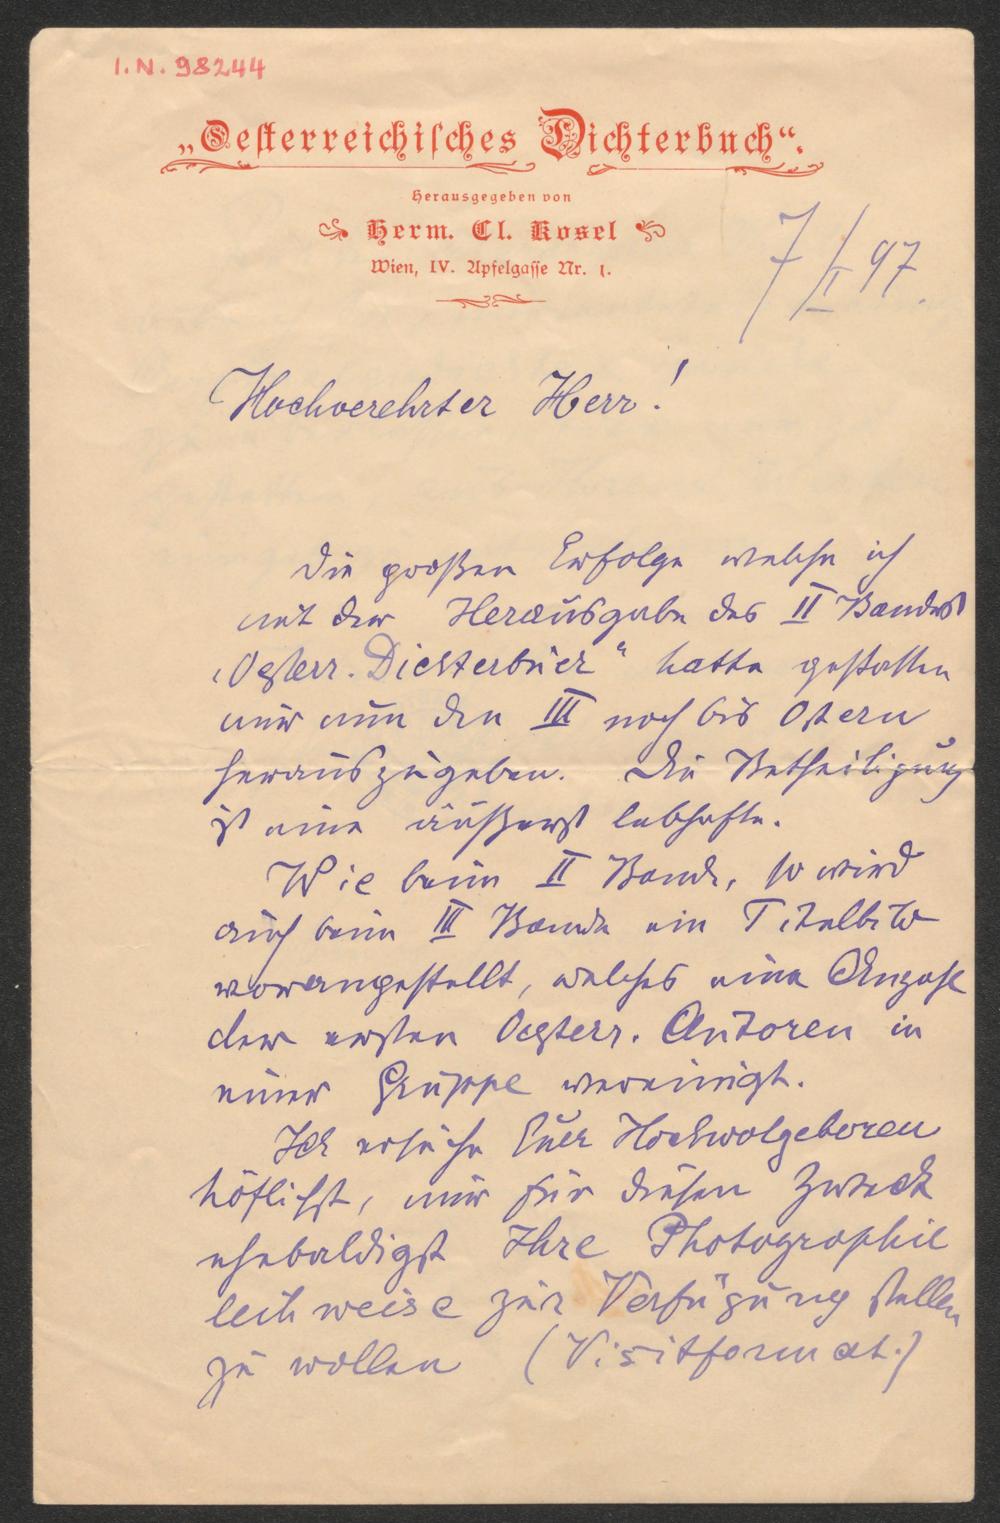 I. N. 98244
„Oesterreichisches Dichterbuch“.
Herausgegeben von
Herm. Cl. Kosel
Wien, IV. Apfelgasse Nr. 1.
7/I 97.
Hochverehrter Herr!
Die großen Erfolge welche ich
mit der Herausgabe des II Bandes
„Oesterr. Dichterbuch“ hatte gestatten
mir nun den III noch bis Ostern
herauszugeben. Die Betheiligung
ist eine äußerst lebhafte.
Wie beim II Bande, so wird
auch beim III Bande ein Titelbild
vorangestellt, welches eine Anzahl
der ersten Oesterr. Autoren in
einer Gruppe vereinigt.
Ich ersuche Euer Hochwolgeboren
höflichst, mir für diesen Zweck
ehebaldigst Ihre Photographie
leihweise zur Verfügung stellen
zu wollen (Visitformat.)